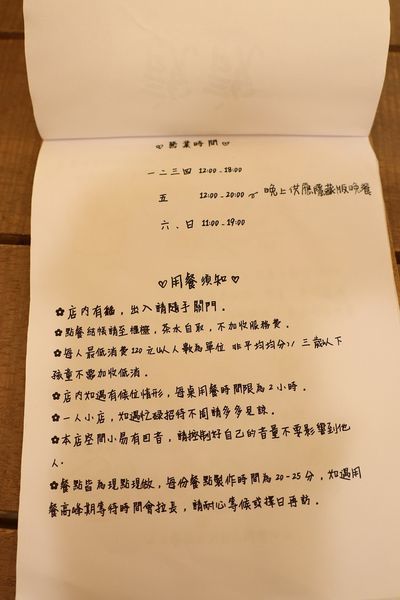 ♡ 營業時間 ♡
一二三四 12:00-18:00
五 12:00-20:00 晚上供應隱藏版晚餐
六、日 11:00-19:00
♡用餐須知♡
✿店內有貓，出入請隨手關門．
✿點餐結帳請至櫃檯，茶水自取，不加收服務費．
✿每人最低消費120元(以人數為單位 非平均均分)／三歲以下
孩童不需加收低消．
✿店內如遇有候位情形，每桌用餐時間限為2小時．
✿一人小店，如遇忙碌招待不周請多多見諒．
✿本店空間小易有回音，請控制好自己的音量不要影響到他
人．
✿餐點皆為現點現做，每份餐點製作時間為20-25分，如遇用
餐高峰期等待時間會拉長，請耐心等候或擇日再訪．